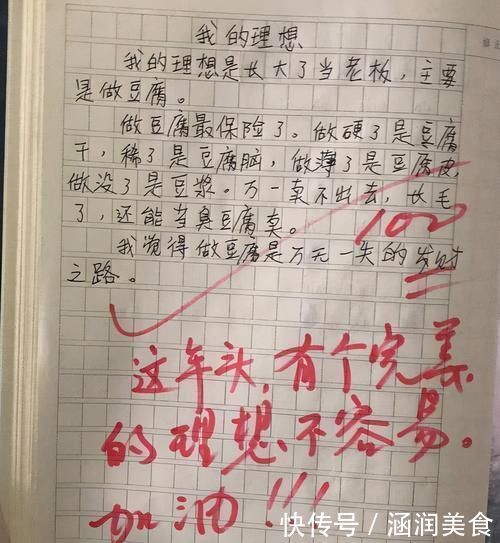 我的理想
我的理想是长大了当老板，主要
是做豆腐。
做豆腐最保险了。做硬了是豆腐
干，稀了是豆腐脑，做薄了是豆腐皮，
做没了是豆浆。万一卖不出去，长毛
了，还能当臭豆腐卖。
100
我觉得做豆腐是万无一失的发财
之路。
这年头，有个完美
的理想不容易。
加油!!!
快传号/涵润美食